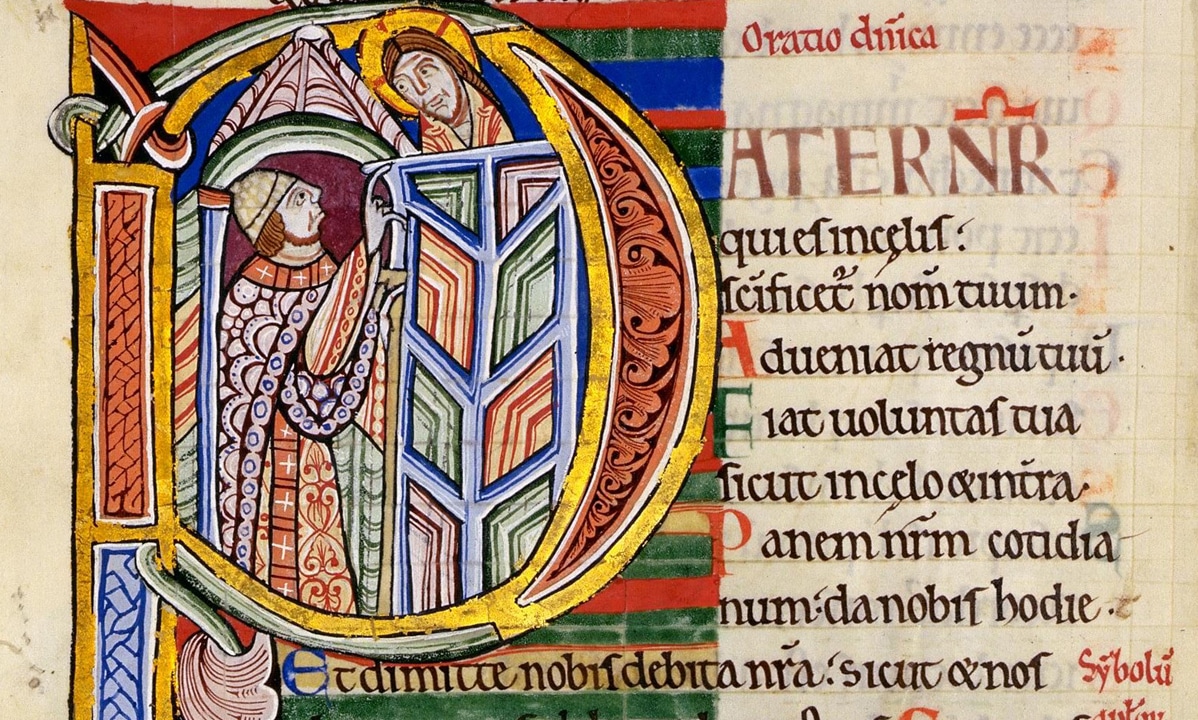 Oratio dñica
PATER NR̄
qui eſ in cęliſ:
ſcīficet᷑ nom̄ tuum·
Adueniat regnū tuū·
Fiat uoluntaſ tua
ſicut in cęlo & in tr̄a·
Panem nr̄m cotidia
num: da nobiſ hodie·
Et dimitte nobiſ debita nr̄a: sicut & noſ
Sẏbolū